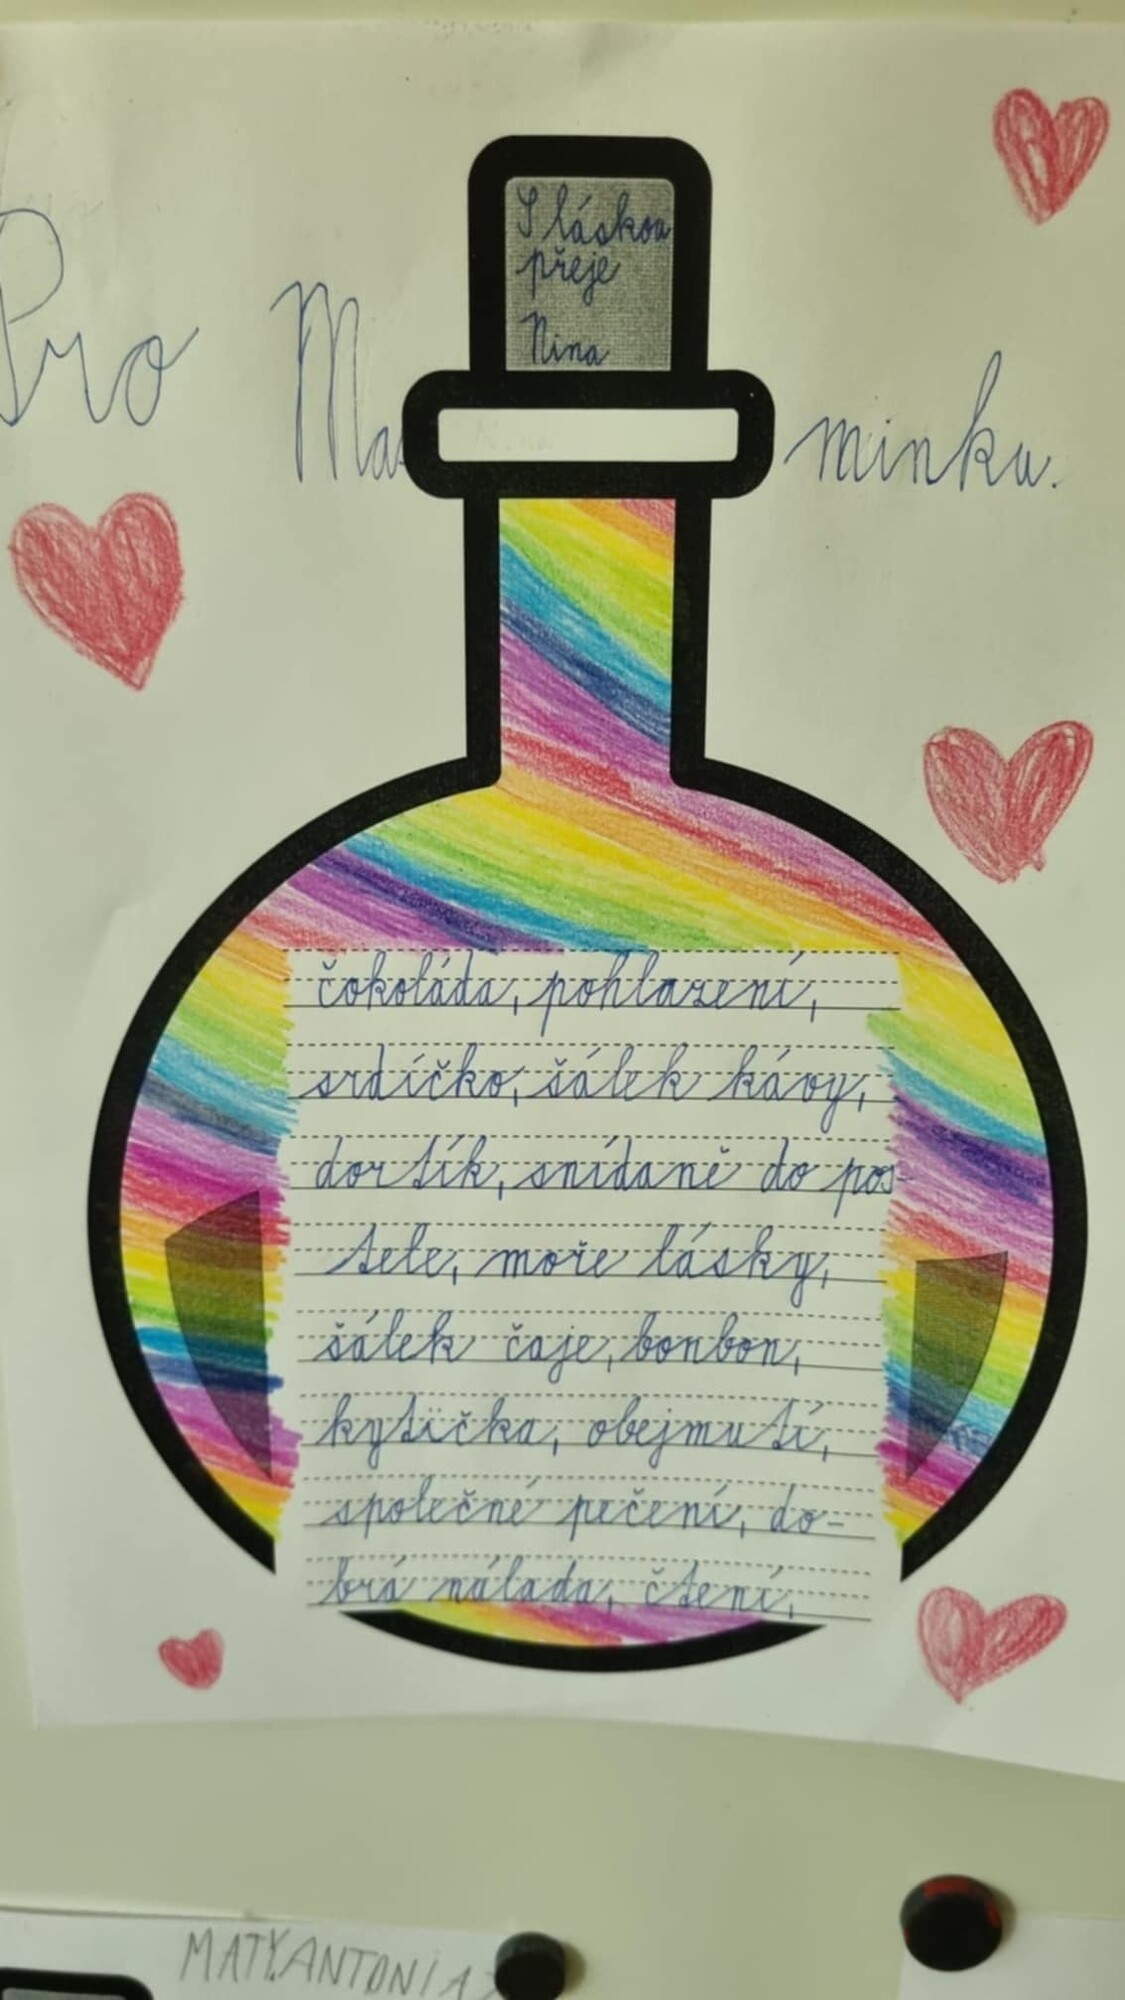 S láskou
přeje
Nina
Pro Ma minku.
čokoláda, pohlazení,
srdíčko, šálek kávy,
dortík, snídaně do pos-
tele, moře lásky,
šálek čaje, bonbon,
kytička, obejmutí,
společné pečení, do-
brá nálada, čtení,